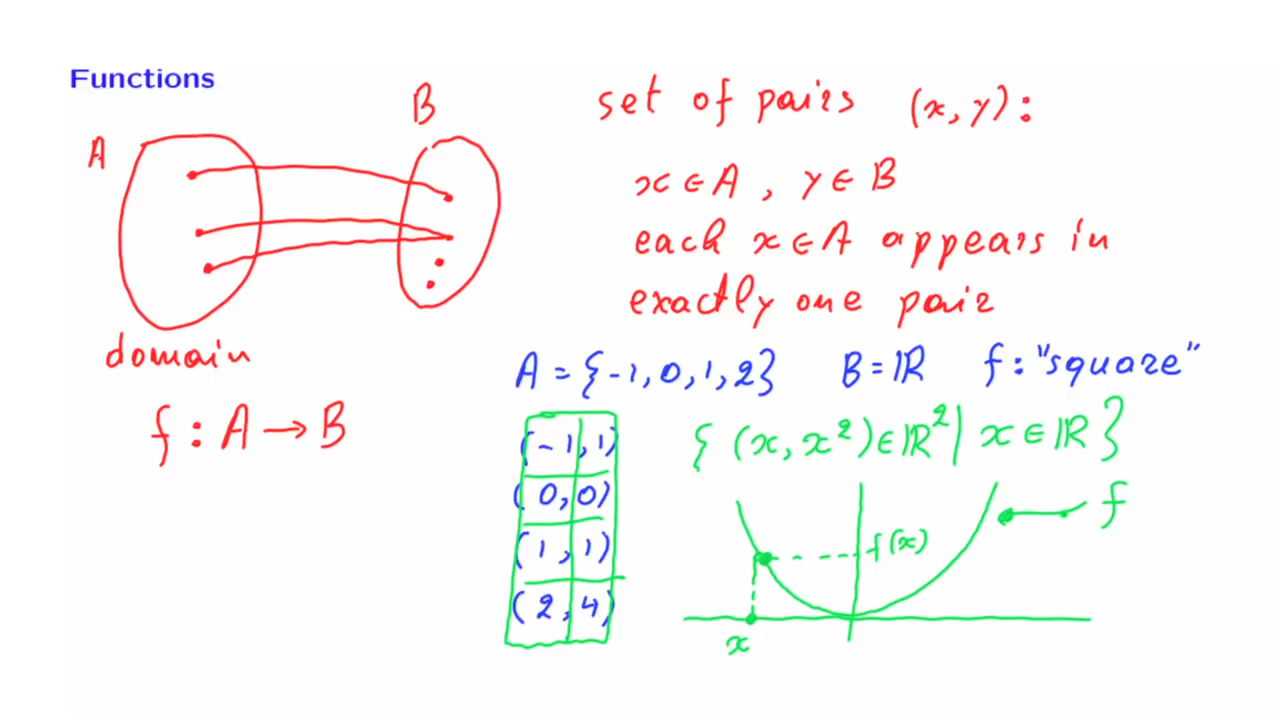 Functions
A
B
domain
f : A → B
set of pairs (x, y) :
x ∈ A , y ∈ B
each x ∈ A appears in
exactly one pair
A = {-1, 0, 1, 2} B = ℝ f : "square"
(-1, 1)
(0, 0)
(1, 1)
(2, 4)
{ (x, x²) ∈ ℝ² | x ∈ ℝ }
f
f(x)
x